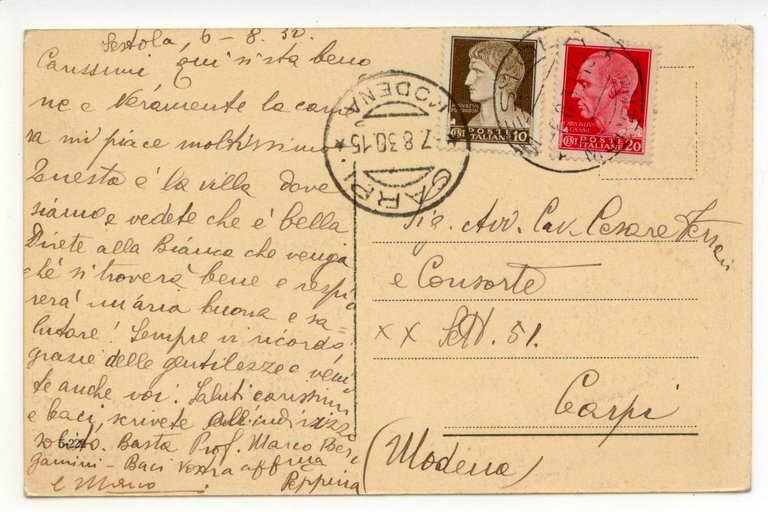 Sestola, 6-8.30.
Carissimi qui si sta beno
ne e veramente la came
ra mi piace moltissimo
Questa è la villa dove
siamo, e vedete che è bella
Direte alla Bianca che venga
chè si troverà bene e respi
rerà un'aria buona e sa-
lutare! Sempre vi ricordo,
grazie delle gentilezze e veni
te anche voi. Saluti carissimi
e baci, scrivete all'indirizzo
solito. Basta Prof. Marco Ber
gamini - Baci vostra affma
Peppina
e Marco
5-222
CARPI
MODENA
7.8.30.15
POSTE
ITALIANE
CENT 10
POSTE
ITALIANE
CENT 20
Sig. Avv. Cav. Cesare Ferrari
e Consorte
XX Sett. 51.
Carpi
(Modena)